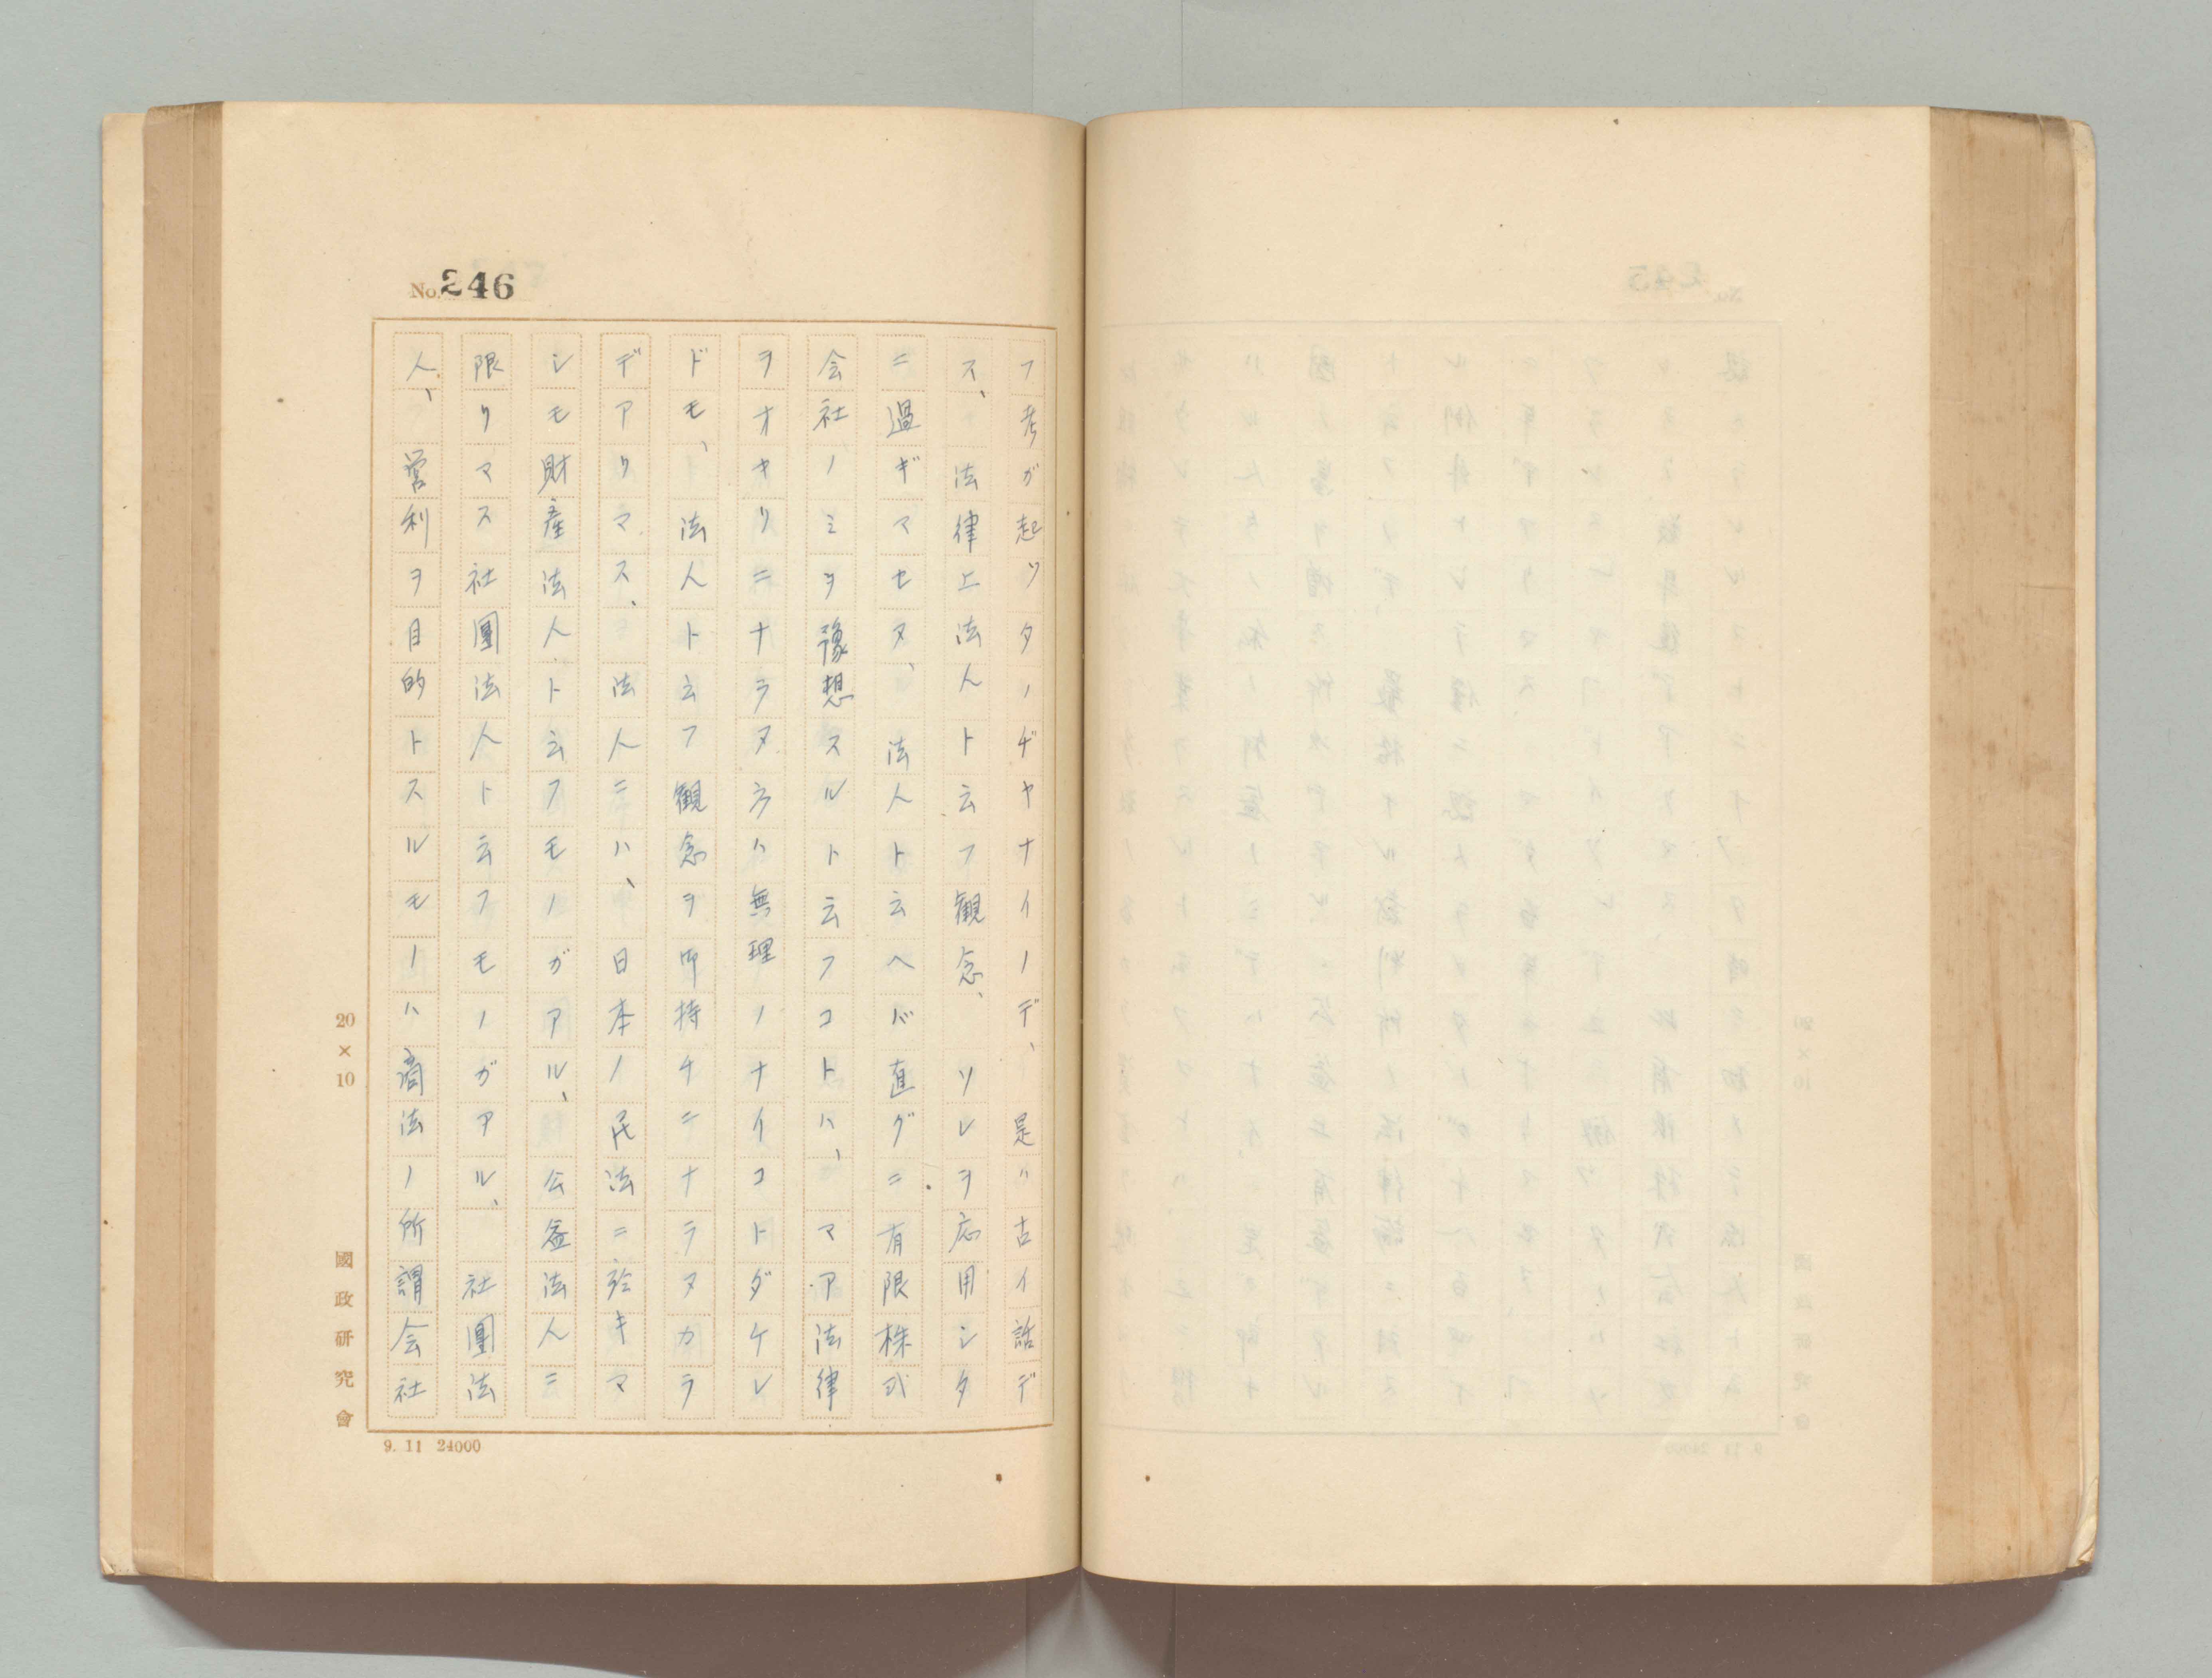 No. 246
フ考ガ起ツタノヂヤナイノデ、是ハ古イ話デ
ス、法律上法人ト云フ観念、ソレヲ応用シタ
ニ過ギマセヌ、法人ト云ヘバ直グニ有限株式
会社ノミヲ豫想スルト云フコトハ、マア法律
ヲオヤリニナラヌ方ハ無理ノナイコトダケレ
ドモ、法人ト云フ観念ヲ御持チニナラヌカラ
デアリマス、法人ニハ、日本ノ民法ニ於キマ
シモ財産法人ト云フモノガアル、公益法人ニ
限リマス社團法人ト云フモノガアル、社團法
人、営利ヲ目的トスルモノハ商法ノ所謂会社
20×10
國政研究會
9. 11 24000